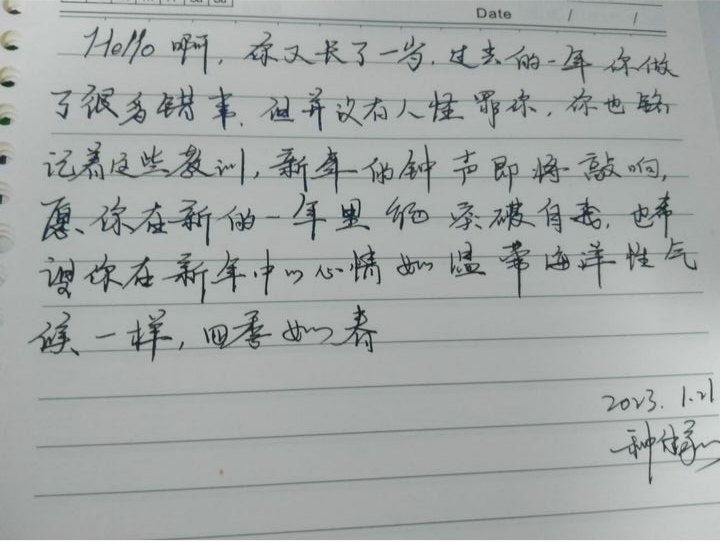 Date / /
Hello 啊，你又长了一岁，过去的一年你做
了很多错事，但并没有人怪罪你，你也铭
记着这些教训，新年的钟声即将敲响，
愿你在新的一年里能突破自我，也希
望你在新年中以心情如温带海洋性气
候一样，四季如春
2023.1.21